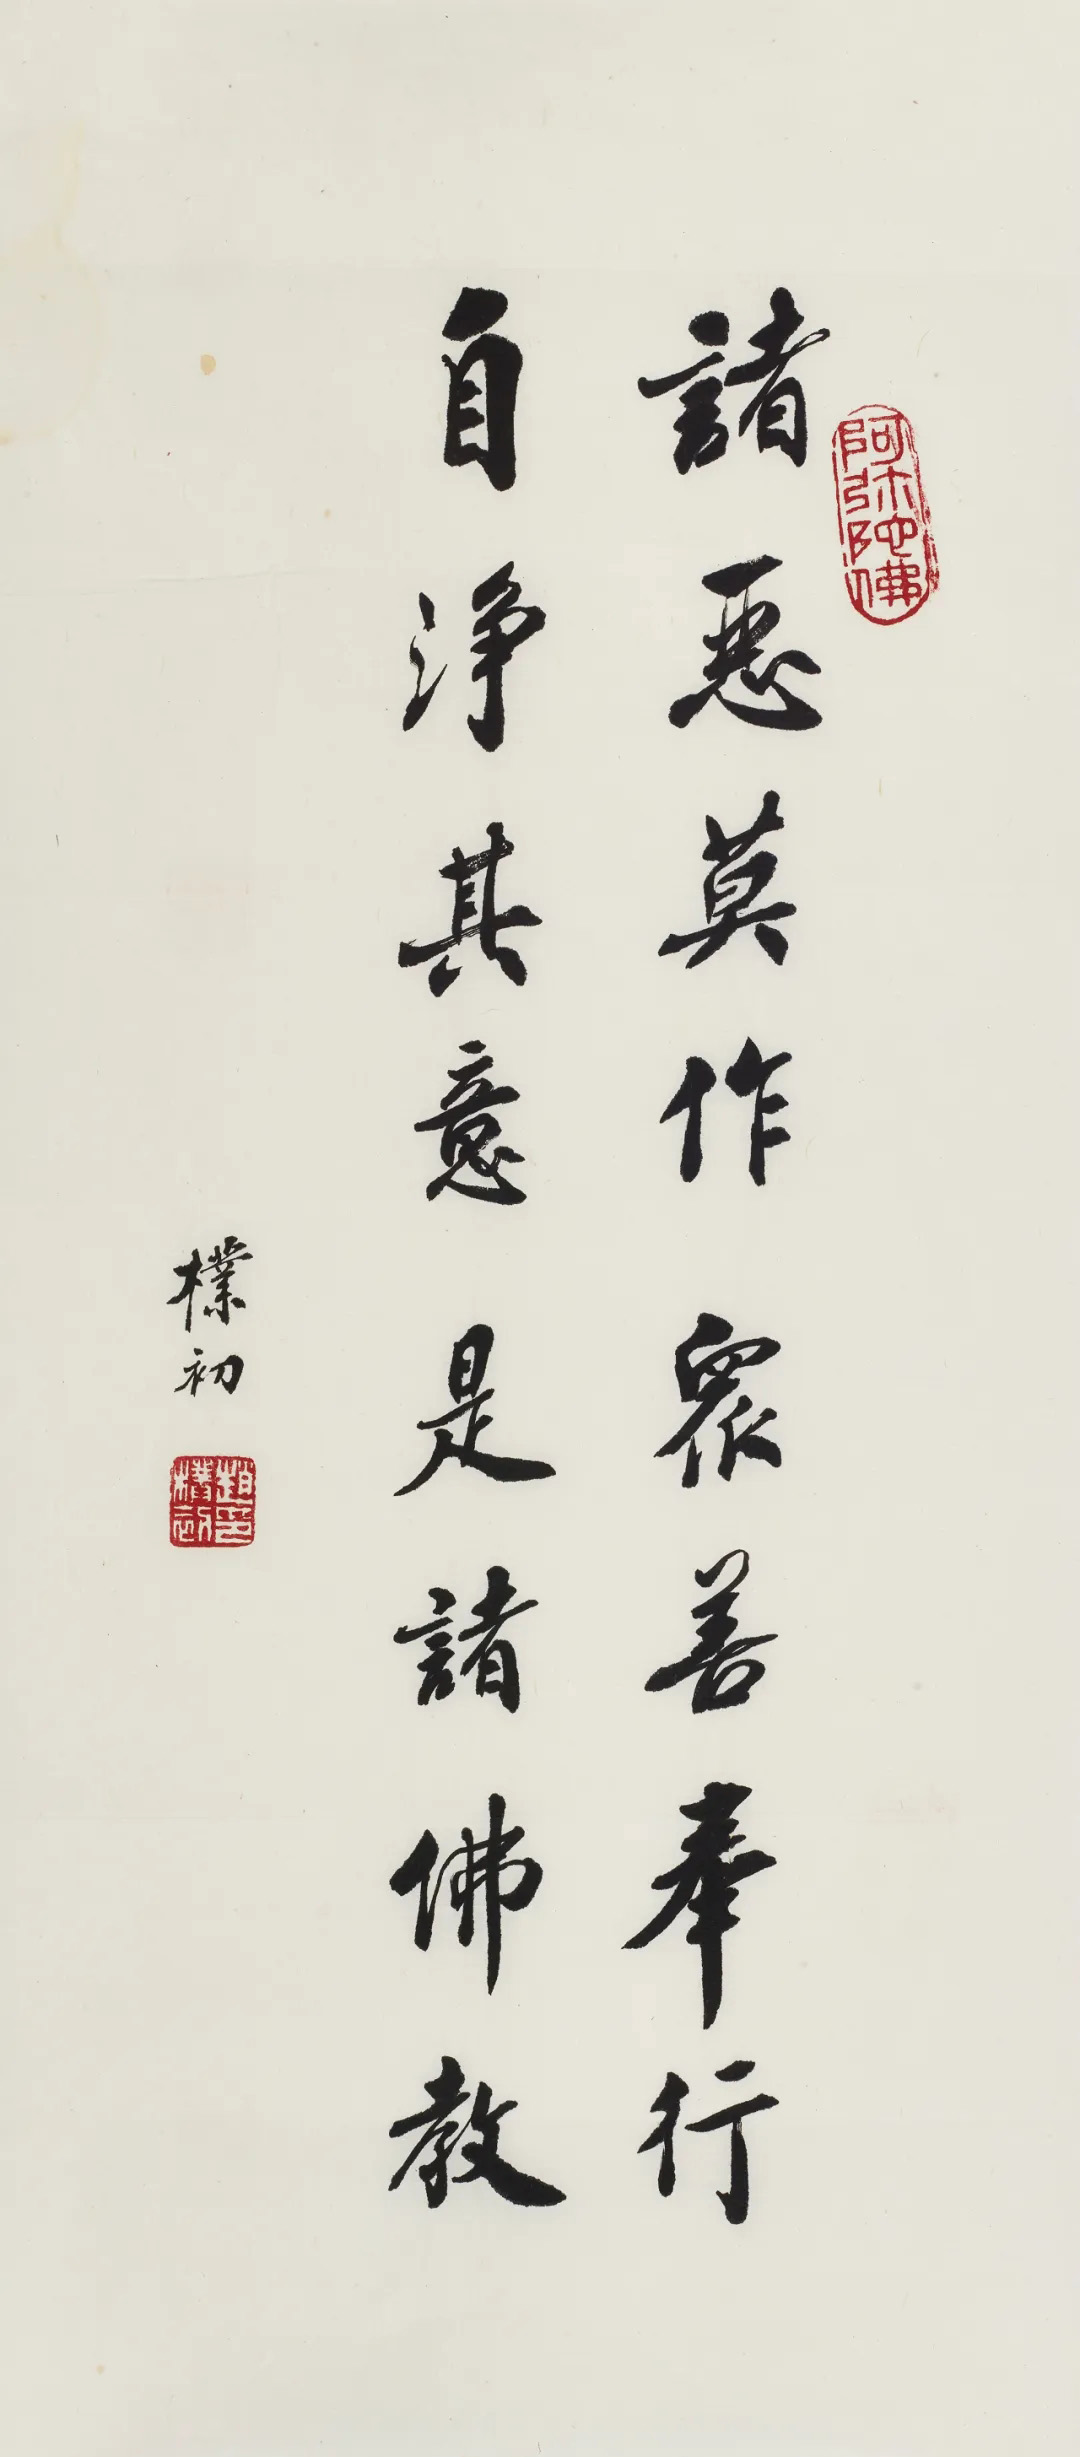 諸惡莫作眾善奉行
自淨其意是諸佛教
樸初
阿弥陀佛
趙樸初印